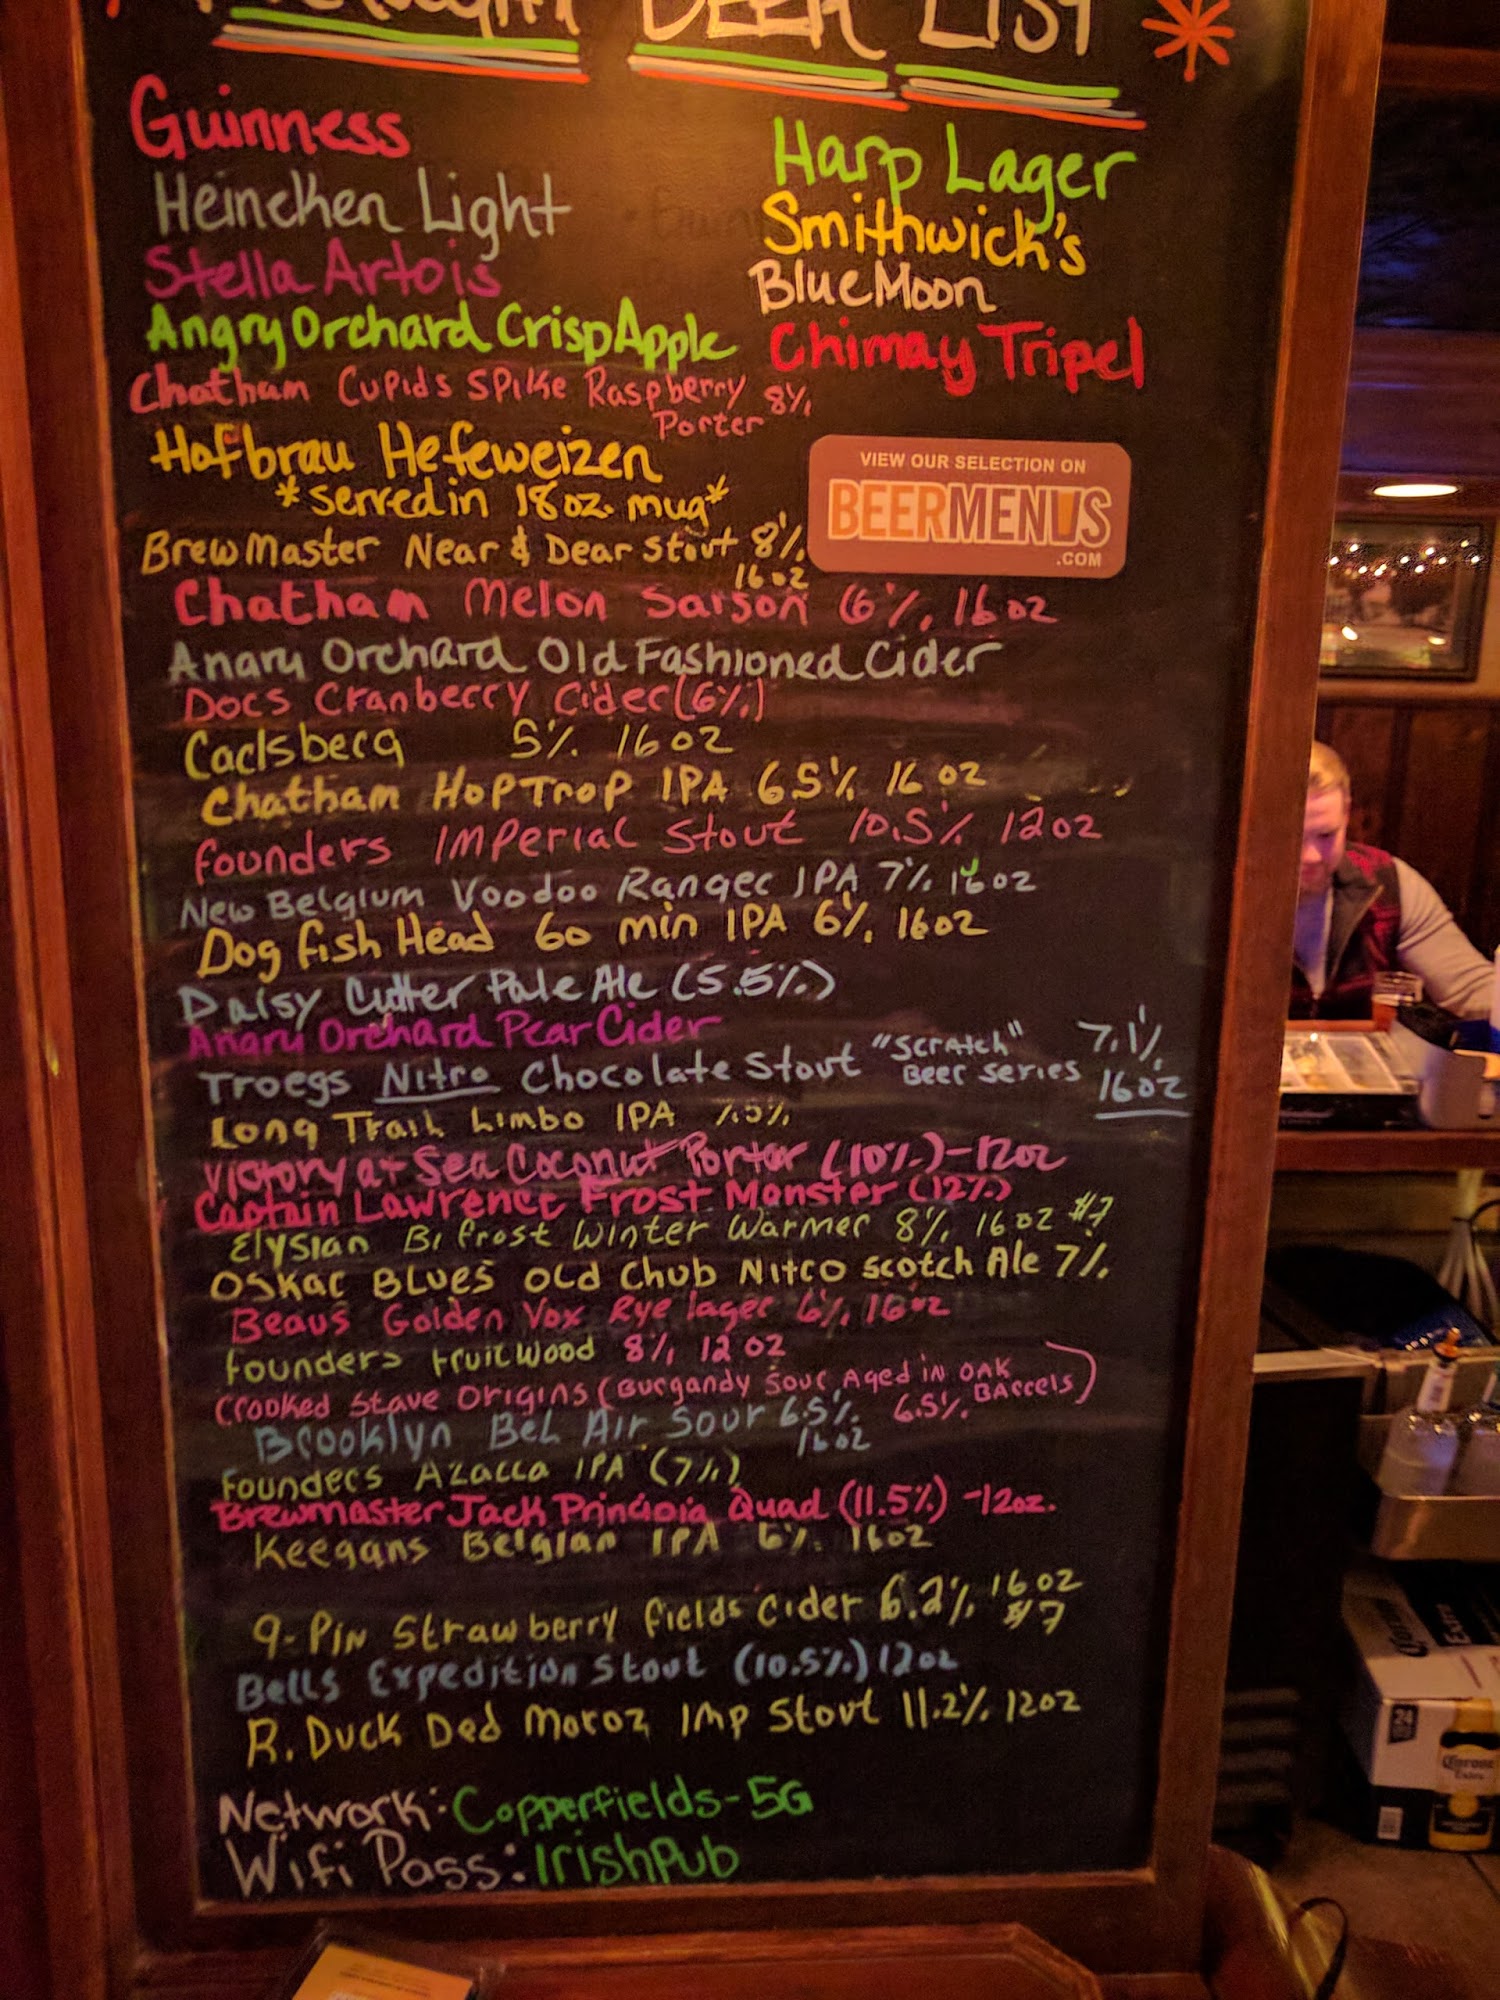 Draught BEER LIST
Guinness
Harp Lager
Heineken Light
Smithwick's
Stella Artois
Blue Moon
Angry Orchard Crisp Apple
Chimay Tripel
Chatham Cupids Spike Raspberry 8%
Porter
Hofbrau Hefeweizen
*served in 18oz. mug*
VIEW OUR SELECTION ON
BEERMENUS
.COM
BrewMaster Near & Dear Stout 8%
16oz
Chatham Melon Saison 6% 16oz
Angry Orchard Old Fashioned Cider
Docs Cranberry Cider (6%)
Carlsberg 5% 16oz
Chatham HopTrop IPA 6.5% 16oz
Founders Imperial Stout 10.5% 12oz
New Belgium Voodoo Ranger IPA 7% 16oz
Dog fish Head 60 min IPA 6% 16oz
Daisy Cutter Pale Ale (5.5%)
Angry Orchard Pear Cider
Troegs Nitro Chocolate Stout "Scratch" 7.1%
Beer Series 16oz
Long Trail Limbo IPA
Victory at Sea Coconut Porter (10%)-12oz
Captain Lawrence Frost Monster (12%)
Elysian Bifrost Winter Warmer 8% 16oz $7
Oskar Blues Old Chub Nitro Scotch Ale 7%
Beaus Golden Vox Rye lager 6% 16oz
Founders Fruitwood 8% 12oz
Crooked Stave Origins (Burgandy Sour Aged in OAK
6.5% BArrels)
Brooklyn Bel Air Sour 6.5%
16oz
Founders Azacca IPA (7%)
Brewmaster Jack Principia Quad (11.5%) -12oz.
Keegans Belgian IPA 6% 16oz
9-Pin Strawberry fields Cider 6.2% 16oz
$7
Bells Expedition Stout (10.5%) 12oz
R. Duck Ded Moroz Imp Stout 11.2% 12oz
Network: Copperfields-5G
Wifi Pass: IrishPub
24
Corona
Extra